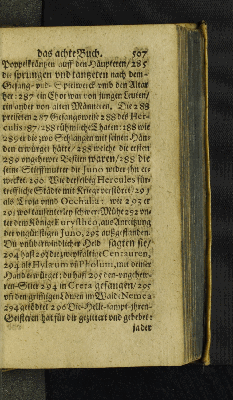 das achte Buch. 507
Poppelkräntzen auff den Häupteren/285
die sprungen vnd tantzeten nach dem
Gesang- vnd- Spielwerck vmb den Altar
her: 287 ein Chor war von jungen Leuten/
ein ander von alten Männeren. Die 288
preiseten 287 Gesangsweise 288 des Her-
culis: 87/288 rühmliche Thaten: 188 wie
289 er die zwo Schlangen mit seinen Hän-
den erwürget hätte/288 welche die ersten
289 ungehewre Bestien waren/288 die
seine Stieffmutter die Juno wider ihn er-
wecket. 290 Wie derselbig Hercules für-
treffliche Städte mit Krieg verstöret/291
als Troia vnnd Oechalia: wie 293 er
291 wol tausenterley schwer Mühe 292 vn-
ter dem Könige Eurystheo, aus Antreibung
der vngünstigen Juno, 293 außgestanden.
Du vnüberwindlicher Held sagten sie/
294 hast 293 die zweyspaltige Centauren,
294 als Hylæum vñ Pholum, mit deiner
Hand erwürget: du hast 295 den vngehew-
ren Stier 294 in Creta gefangen/295
vñ den grossen Löwen im Wald Nemea
294 getödtet 296 Die Helle sampt jhren
Geisteren hat für dir gezittert vnd gebebet:
jader